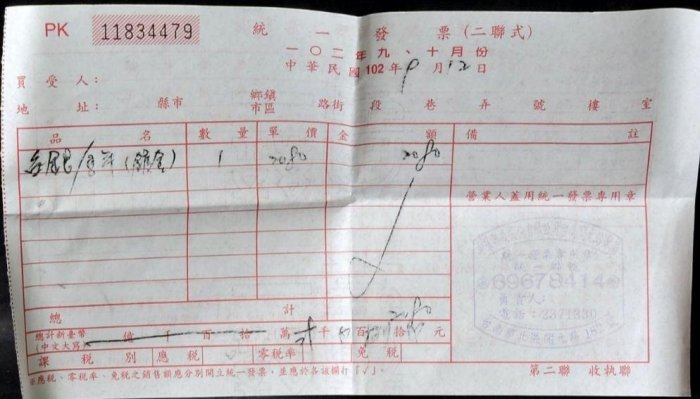 PK 11834479 統一發票(二聯式)
一〇二年九、十月份
中華民國102年9月12日
買受人:
地址: 縣市 鄉鎮市區 路街 段 巷 弄 號 樓 室
品名 數量 單價 金額 備註
1 2080 2080
營業人蓋用統一發票專用章
統一編號
69678414
負責人:
電話:
總計 2080
總計新臺幣(中文大寫) 億 千 百 拾 萬 千 百 拾 元
課稅別 應稅 零稅率 免稅
※應稅、零稅率、免稅之銷售額應分別開立統一發票,並應於各該欄打「✓」。
第二聯 收執聯